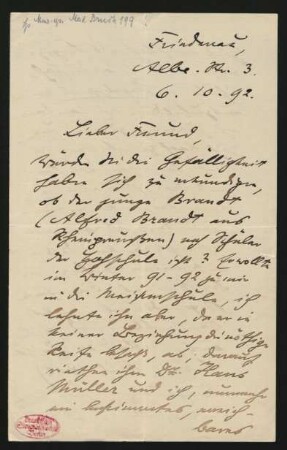 Friedenau,
Albe-Str. 3.
6. 10. 92.
Lieber Freund,
würden Sie die Gefälligkeit
haben sich zu erkundigen,
ob der junge Brandt
(Alfred Brandt aus
Rheinpreußen) noch Schüler
der Hochschule ist? Er wollte
im Winter 91-92 zu mir
in die Meisterschule, ich
lehnte ihn aber, da er in
keiner Beziehung die nöthige
Reife besaß, ab, darauf
riethen ihm Dr. Hans
Müller und ich, nunmehr
ein bestimmtes, erreich-
bares